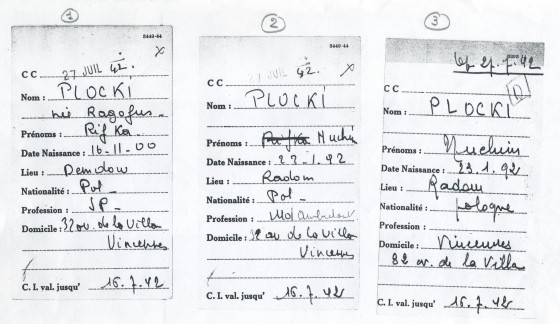 1
8449-44
x
C C 27 JUIL 42.
Nom : PLOCKI
née
Prénoms : Rifka
Date Naissance : 16-11-00
Lieu :
Nationalité : Pol-
Profession : SP-
Domicile : 32 av. de la Villa
Vincennes
C. I. val. jusqu' 16.7.42
2
8449-44
x
C C 27 JUIL 42.
Nom : PLOCKI
Prénoms : Rifka
Date Naissance : 23-1.92
Lieu : Radom
Nationalité : Pol-
Profession :
Domicile : 32 av. de la Villa
Vincennes
C. I. val. jusqu' 16.7.42
3
C C
D
Nom : PLOCKI
Prénoms : Nuchim
Date Naissance : 23.1.92
Lieu : Radom
Nationalité : pologne
Profession :
Domicile : Vincennes
82 av. de la Villa
C. I. val. jusqu' 16.7.42